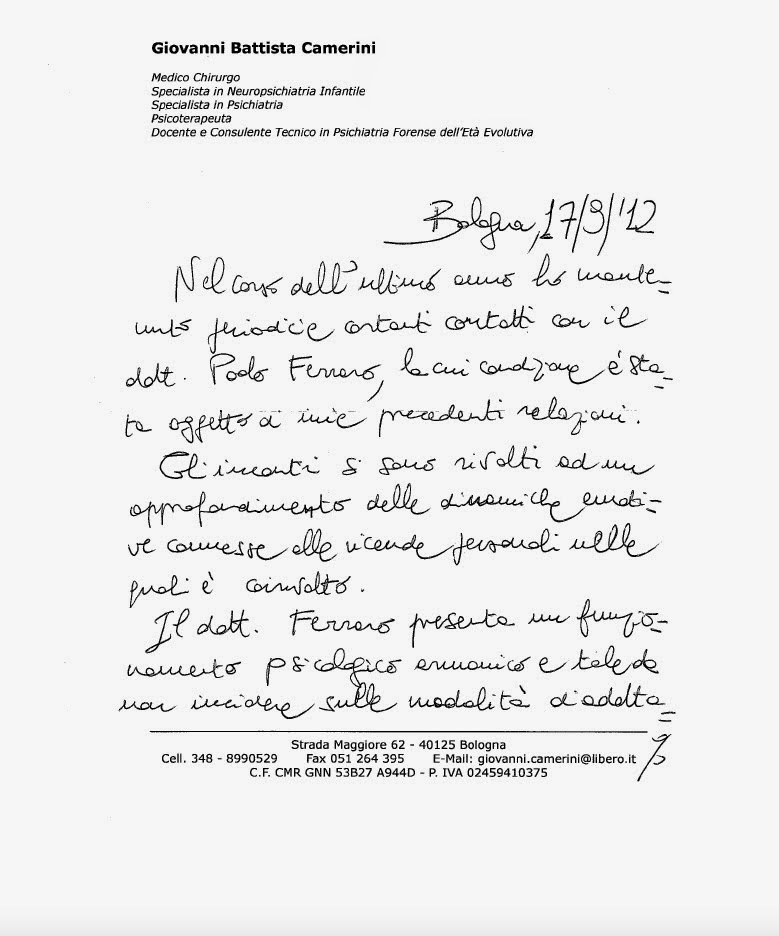 Giovanni Battista Camerini
Medico Chirurgo
Specialista in Neuropsichiatria Infantile
Specialista in Psichiatria
Psicoterapeuta
Docente e Consulente Tecnico in Psichiatria Forense dell'Età Evolutiva
Bologna, 17/9/'12
Nel corso dell'ultimo anno ho mante=
nuto periodici e costanti contatti con il
dott. Paolo Ferraro, la cui condizione è sta=
ta oggetto di mie precedenti relazioni.
Gli incontri si sono rivolti ad un
approfondimento delle dinamiche emoti=
ve connesse alle vicende personali nelle
quali è coinvolto.
Il dott. Ferraro presenta un funzio=
namento psicologico armonico e tale da
non incidere sulle modalità d'adatta=
Strada Maggiore 62 - 40125 Bologna
Cell. 348 - 8990529 Fax 051 264 395 E-Mail: giovanni.camerini@libero.it
C.F. CMR GNN 53B27 A944D - P. IVA 02459410375